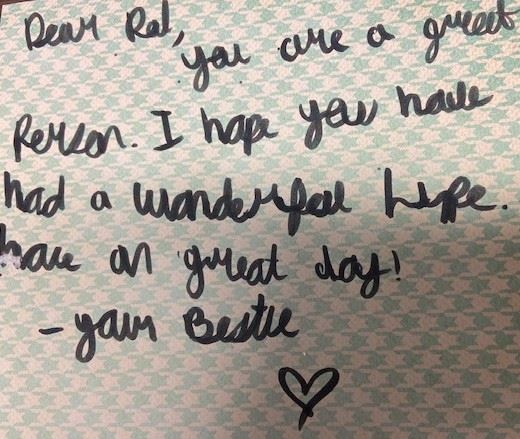 Dear Ral,
you are a great
Person. I hope you have
had a wonderful life.
have an great day!
- your Bestie